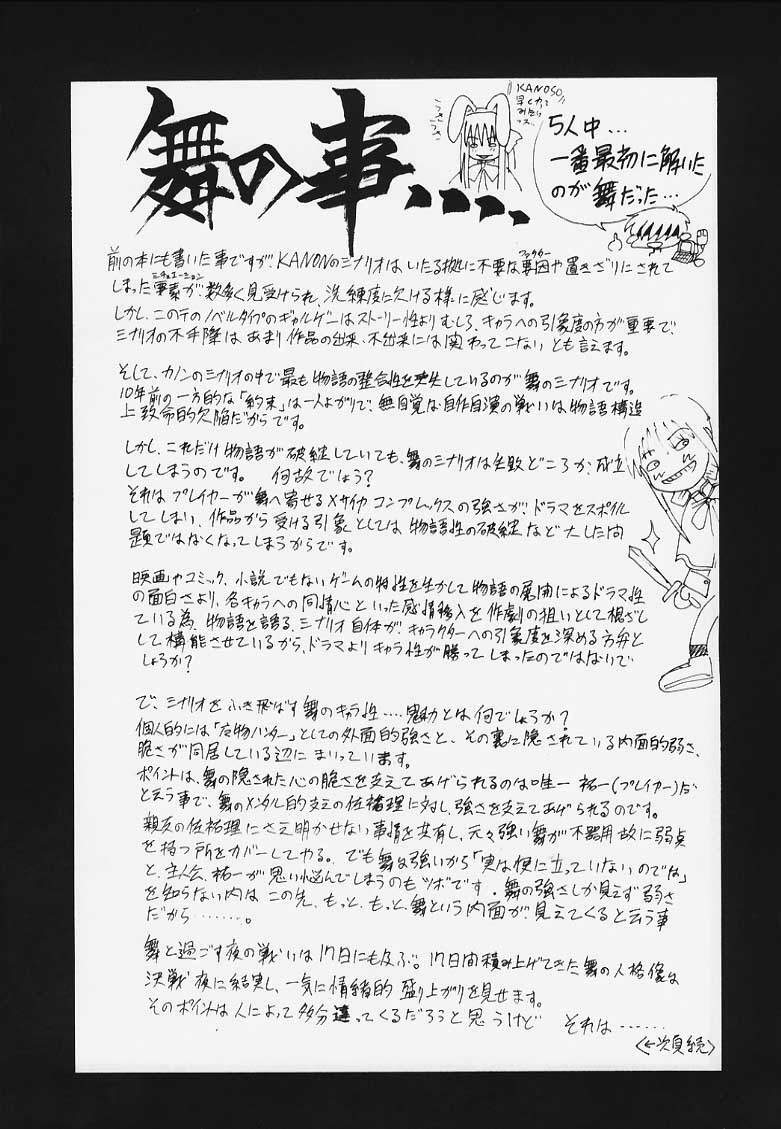 舞の事....
うさうさ
KANOSO
早く
みたい
5人中...
一番最初に解いた
のが舞だった...
前の本にも書いた事ですが、KANONのシナリオはいたる拠に不要な要因や置きざりにされて
ファクター
しまった要素が、数多く見受けられ、洗練度に欠ける様に感じます。
シチュエーション
しかし、この手のノベルタイプのギャルゲーはストーリー性よりむしろ、キャラへの引象度の方が重要で、
シナリオの不手際は、あまり作品の出来、不出来には関わってこないとも言えます。
そして、カノンのシナリオの中で最も物語の整合性を失しているのが舞のシナリオです。
10年前の一方的な「約束」は一人よがりで、無自覚な自作自演の戦いは物語構造
上致命的欠陥だからです。
しかし、これだけ物語が破綻していても、舞のシナリオは失敗どころか、成立
してしまうのです。 何故でしょう?
それはプレイヤーが舞へ寄せるメサイヤコンプレックスの強さが、ドラマをスポイル
してしまい、作品から受ける引象としては、物語性の破綻など大した問
題ではなくなってしまうからです。
映画やコミック、小説でもないゲームの特性を生かして物語の展開によるドラマ性
の面白さより、各キャラへの同情心といった感情移入を作劇の狙いとして根ざし
ている為、物語を語る、シナリオ自体が、キャラクターへの引象度を深める方弁と
して構能させているから、ドラマよりキャラ性が勝ってしまったのではないで
しょうか?
で、シナリオをふき飛ばす舞のキャラ性....魅力とは何でしょうか?
個人的には「魔物ハンター」としての外面的強さと、その裏に隠されている内面的弱さ、
脆さが同居している辺にまいっています。
ポイントは、舞の隠された心の脆さを支えてあげられるのは唯一祐一(プレイヤー)だ
と云う事で、舞のメンタル的支えの佐祐理に対し、強さを支えてあげられるのです。
親友の佐祐理にさえ明かせない事情を共有し、元々強い舞が不器用故に弱点
を持つ所をカバーしてやる。でも舞は強いから「実は役に立っていないのでは」
と、主人公、祐一が思い悩んでしまうのもツボです。舞の強さしか見えず弱さ
を知らない内はこの先、もっと、もっと、舞という内面が見えてくると云う事
だから.......。
舞と過ごす夜の戦いは17日にも及ぶ。17日間積み上げてきた舞の人格像は
決戦夜に結実し、一気に情緒的盛り上がりを見せます。
そのポイントは人によって多分違ってくるだろうと思うけど それは......
<←次頁続>